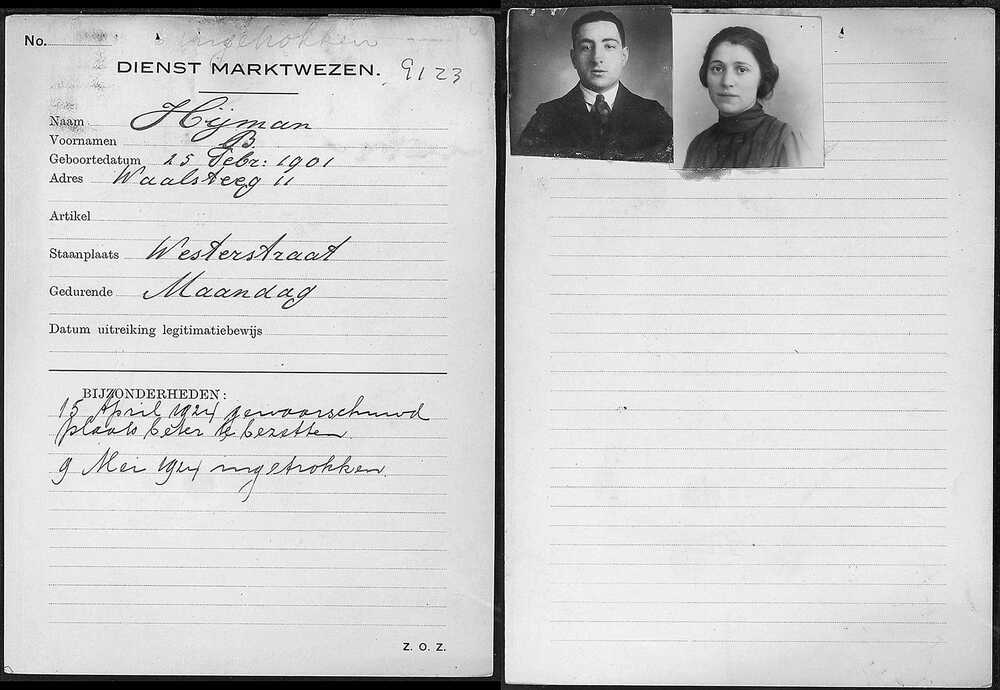 No.
ingetrokken
DIENST MARKTWEZEN. 9123
Naam Hijman
Voornamen B.
Geboortedatum 25 Febr. 1901
Adres Waalsteeg 11
Artikel
Staanplaats Westerstraat
Gedurende Maandag
Datum uitreiking legitimatiebewijs
BIJZONDERHEDEN:
15 April 1924 gewaarschuwd
plaats beter te bezetten.
9 Mei 1924 ingetrokken.
Z. O. Z.